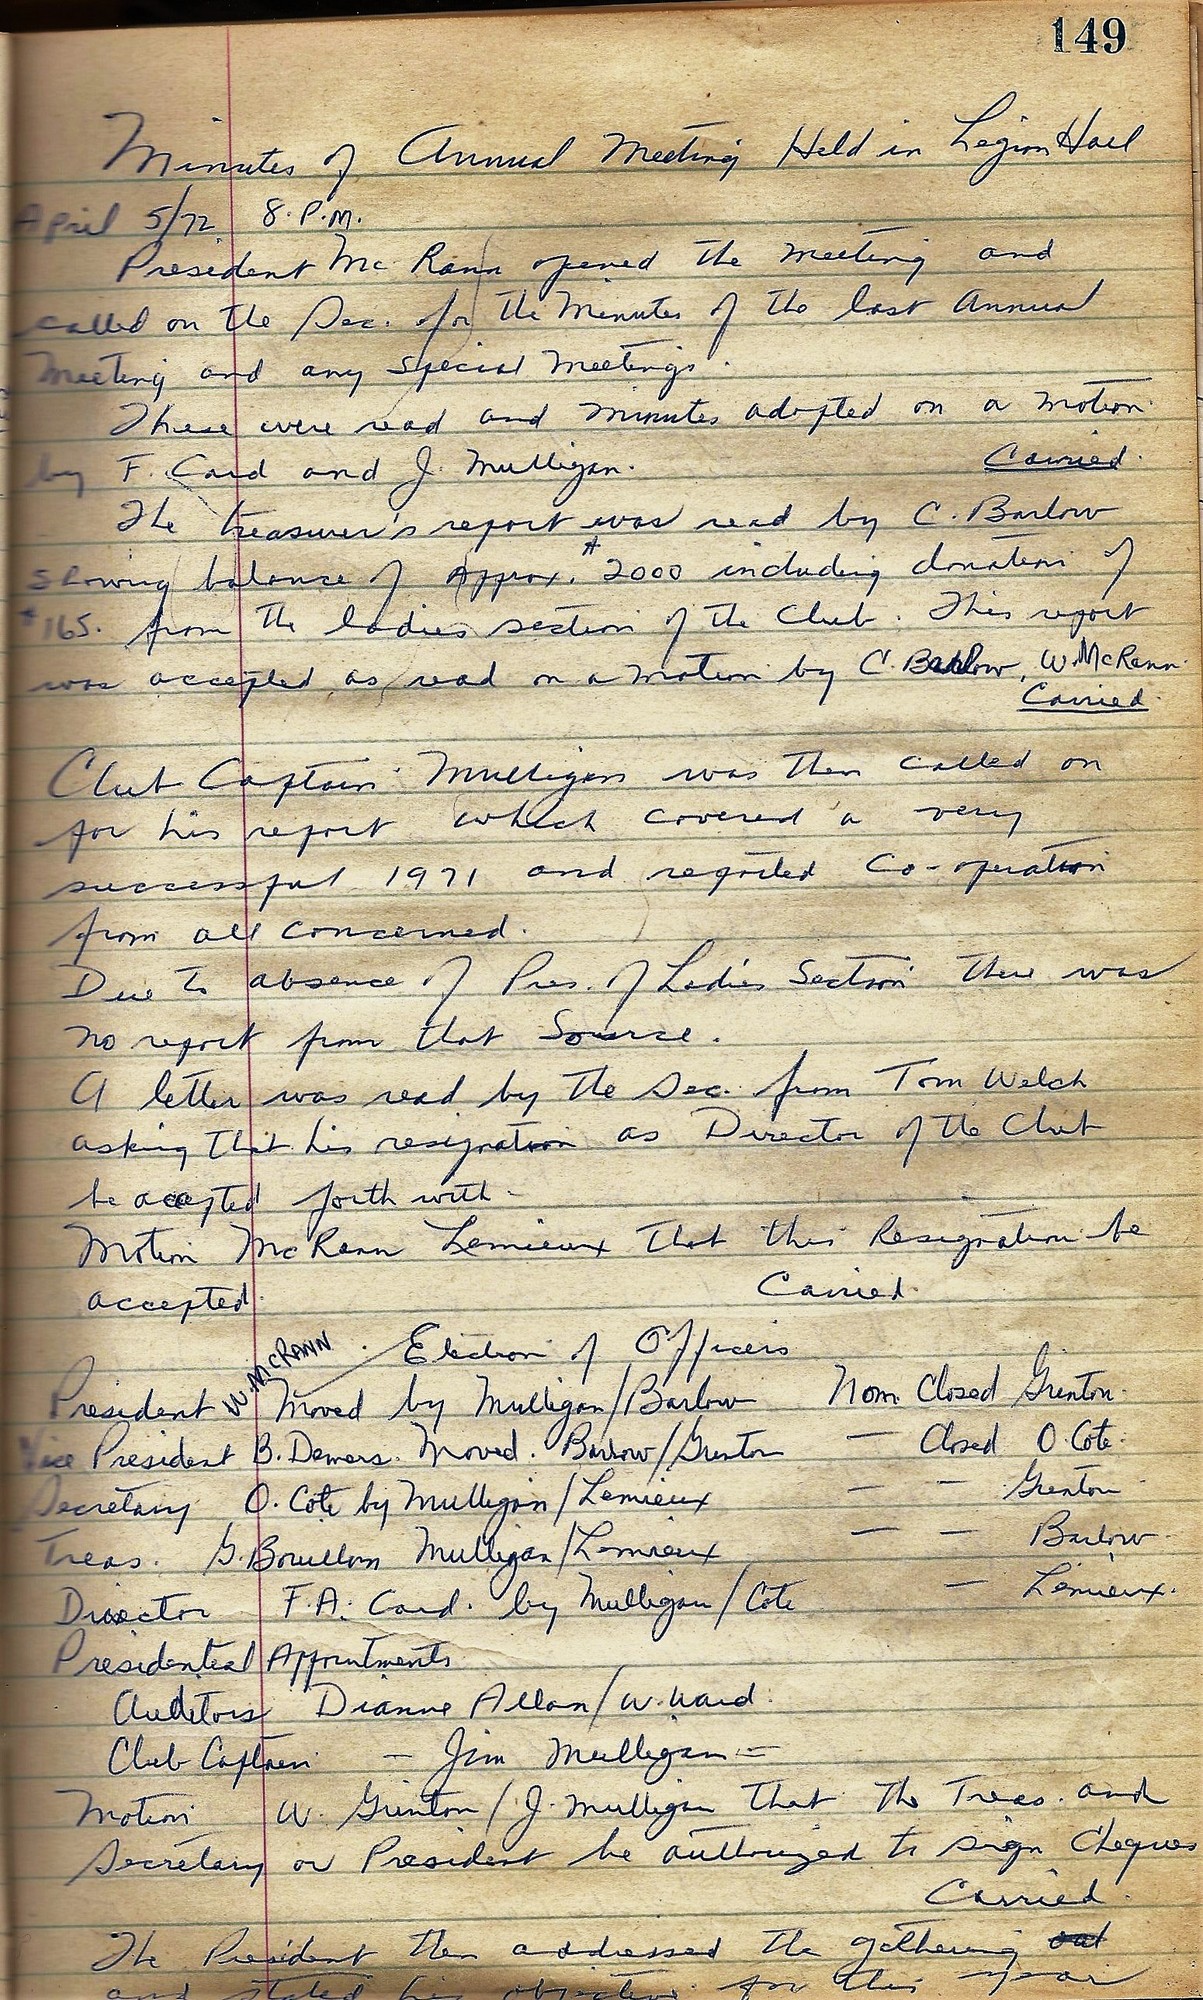 149
Minutes of Annual Meeting Held in Legion Hall
April 5/72 8.P.M.
President McRann opened the meeting and
called on the Sec. for the Minutes of the last Annual
Meeting and any Special Meetings.
These were read and minutes adopted on a motion
by F. Card and J. Mulligan. Carried.
The treasurer's report was read by C. Barlow
showing balance of Approx. $2000 including donation of
$165. from the ladies section of the Club. This report
was accepted as read on a motion by C. Barlow, W. McRann.
Carried.
Club Captain Mulligan was then called on
for his report which covered a very
successful 1971 and reported Co-operation
from all concerned.
Due to absence of Pres. of Ladies Section there was
no report from that Source.
A letter was read by the Sec. from Tom Welch
asking that his resignation as Director of the Club
be accepted forth with.
Motion McRann Lemieux that this Resignation be
accepted. Carried.
Election of Officers
President W. McRANN Moved by Mulligan/Barlow Nom. Closed Grenton.
Vice President B. Demers. Moved. Barlow/Grenton — Closed O. Cote.
Secretary O. Cote by Mulligan/Lemieux — — Grenton
Treas. G. Bouillon Mulligan/Lemieux — — Barlow
Director F.A. Card. by Mulligan/Cote — Lemieux.
Presidential Appointments
Auditors Dianne Allan/W. Ward.
Club Captain — Jim Mulligan —
Motion W. Grenton/J. Mulligan that the Treas. and
Secretary or President be authorized to sign Cheques
Carried.
The President then addressed the gathering
and stated his objective for this year